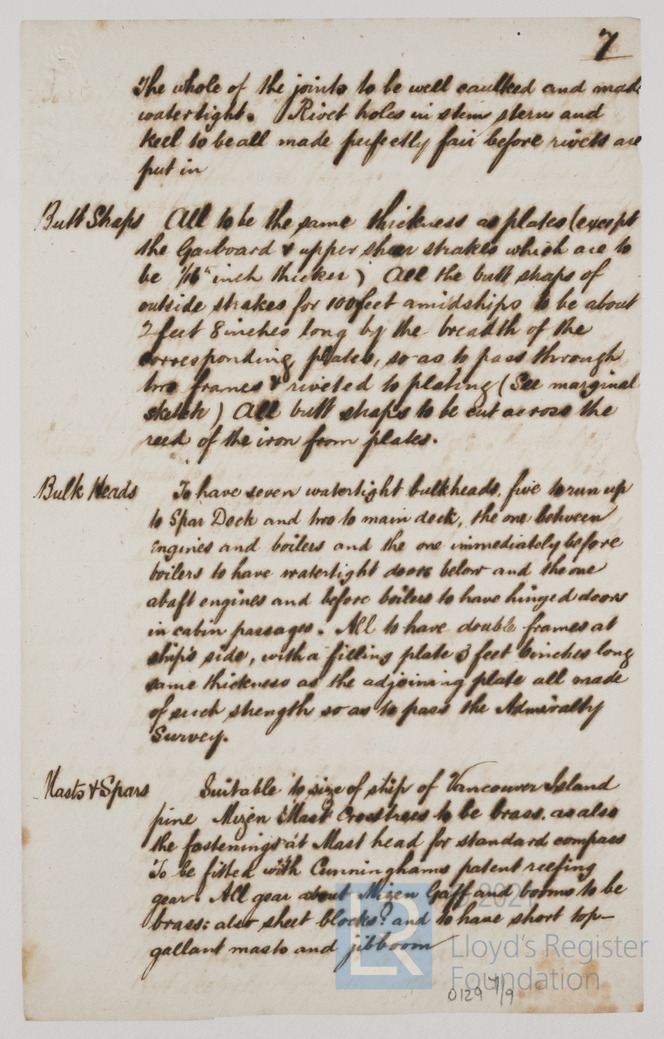 7
The whole of the joints to be well caulked and made
watertight. Rivet holes in stem stern and
keel to be all made perfectly fair before rivets are
put in
Butt Straps All to be the same thickness as plates (except
the Garboard & upper sheer strakes which are to
be 1/16th inch thicker) All the butt straps of
outside strakes for 100 feet amidships to be about
2 feet 8 inches long by the breadth of the
corresponding plates, so as to pass through
two frames & riveted to plating (See marginal
sketch) All butt straps to be cut across the
reed of the iron from plates.
Bulk Heads To have seven watertight bulkheads, five to run up
to Spar Deck and two to main deck, the one between
Engines and boilers and the one immediately before
boilers to have watertight doors below and the one
abaft engines and before boilers to have hinged doors
in cabin passages. All to have double frames at
ship's side, with a filling plate 3 feet 6 inches long
same thickness as the adjoining plate all made
of such strength so as to pass the Admiralty
Survey.
Masts & Spars Suitable to size of ship of Vancouver Island
pine Mizen Mast Crosstrees to be brass, as also
the fastenings at Mast head for standard compass
To be fitted with Cunninghams patent reefing
gear. All gear about Mizen Gaff and booms to be
brass: also sheet blocks? and to have short top-
gallant masts and jibboom
2021
LR
Lloyd's Register
Foundation
0129 7/9